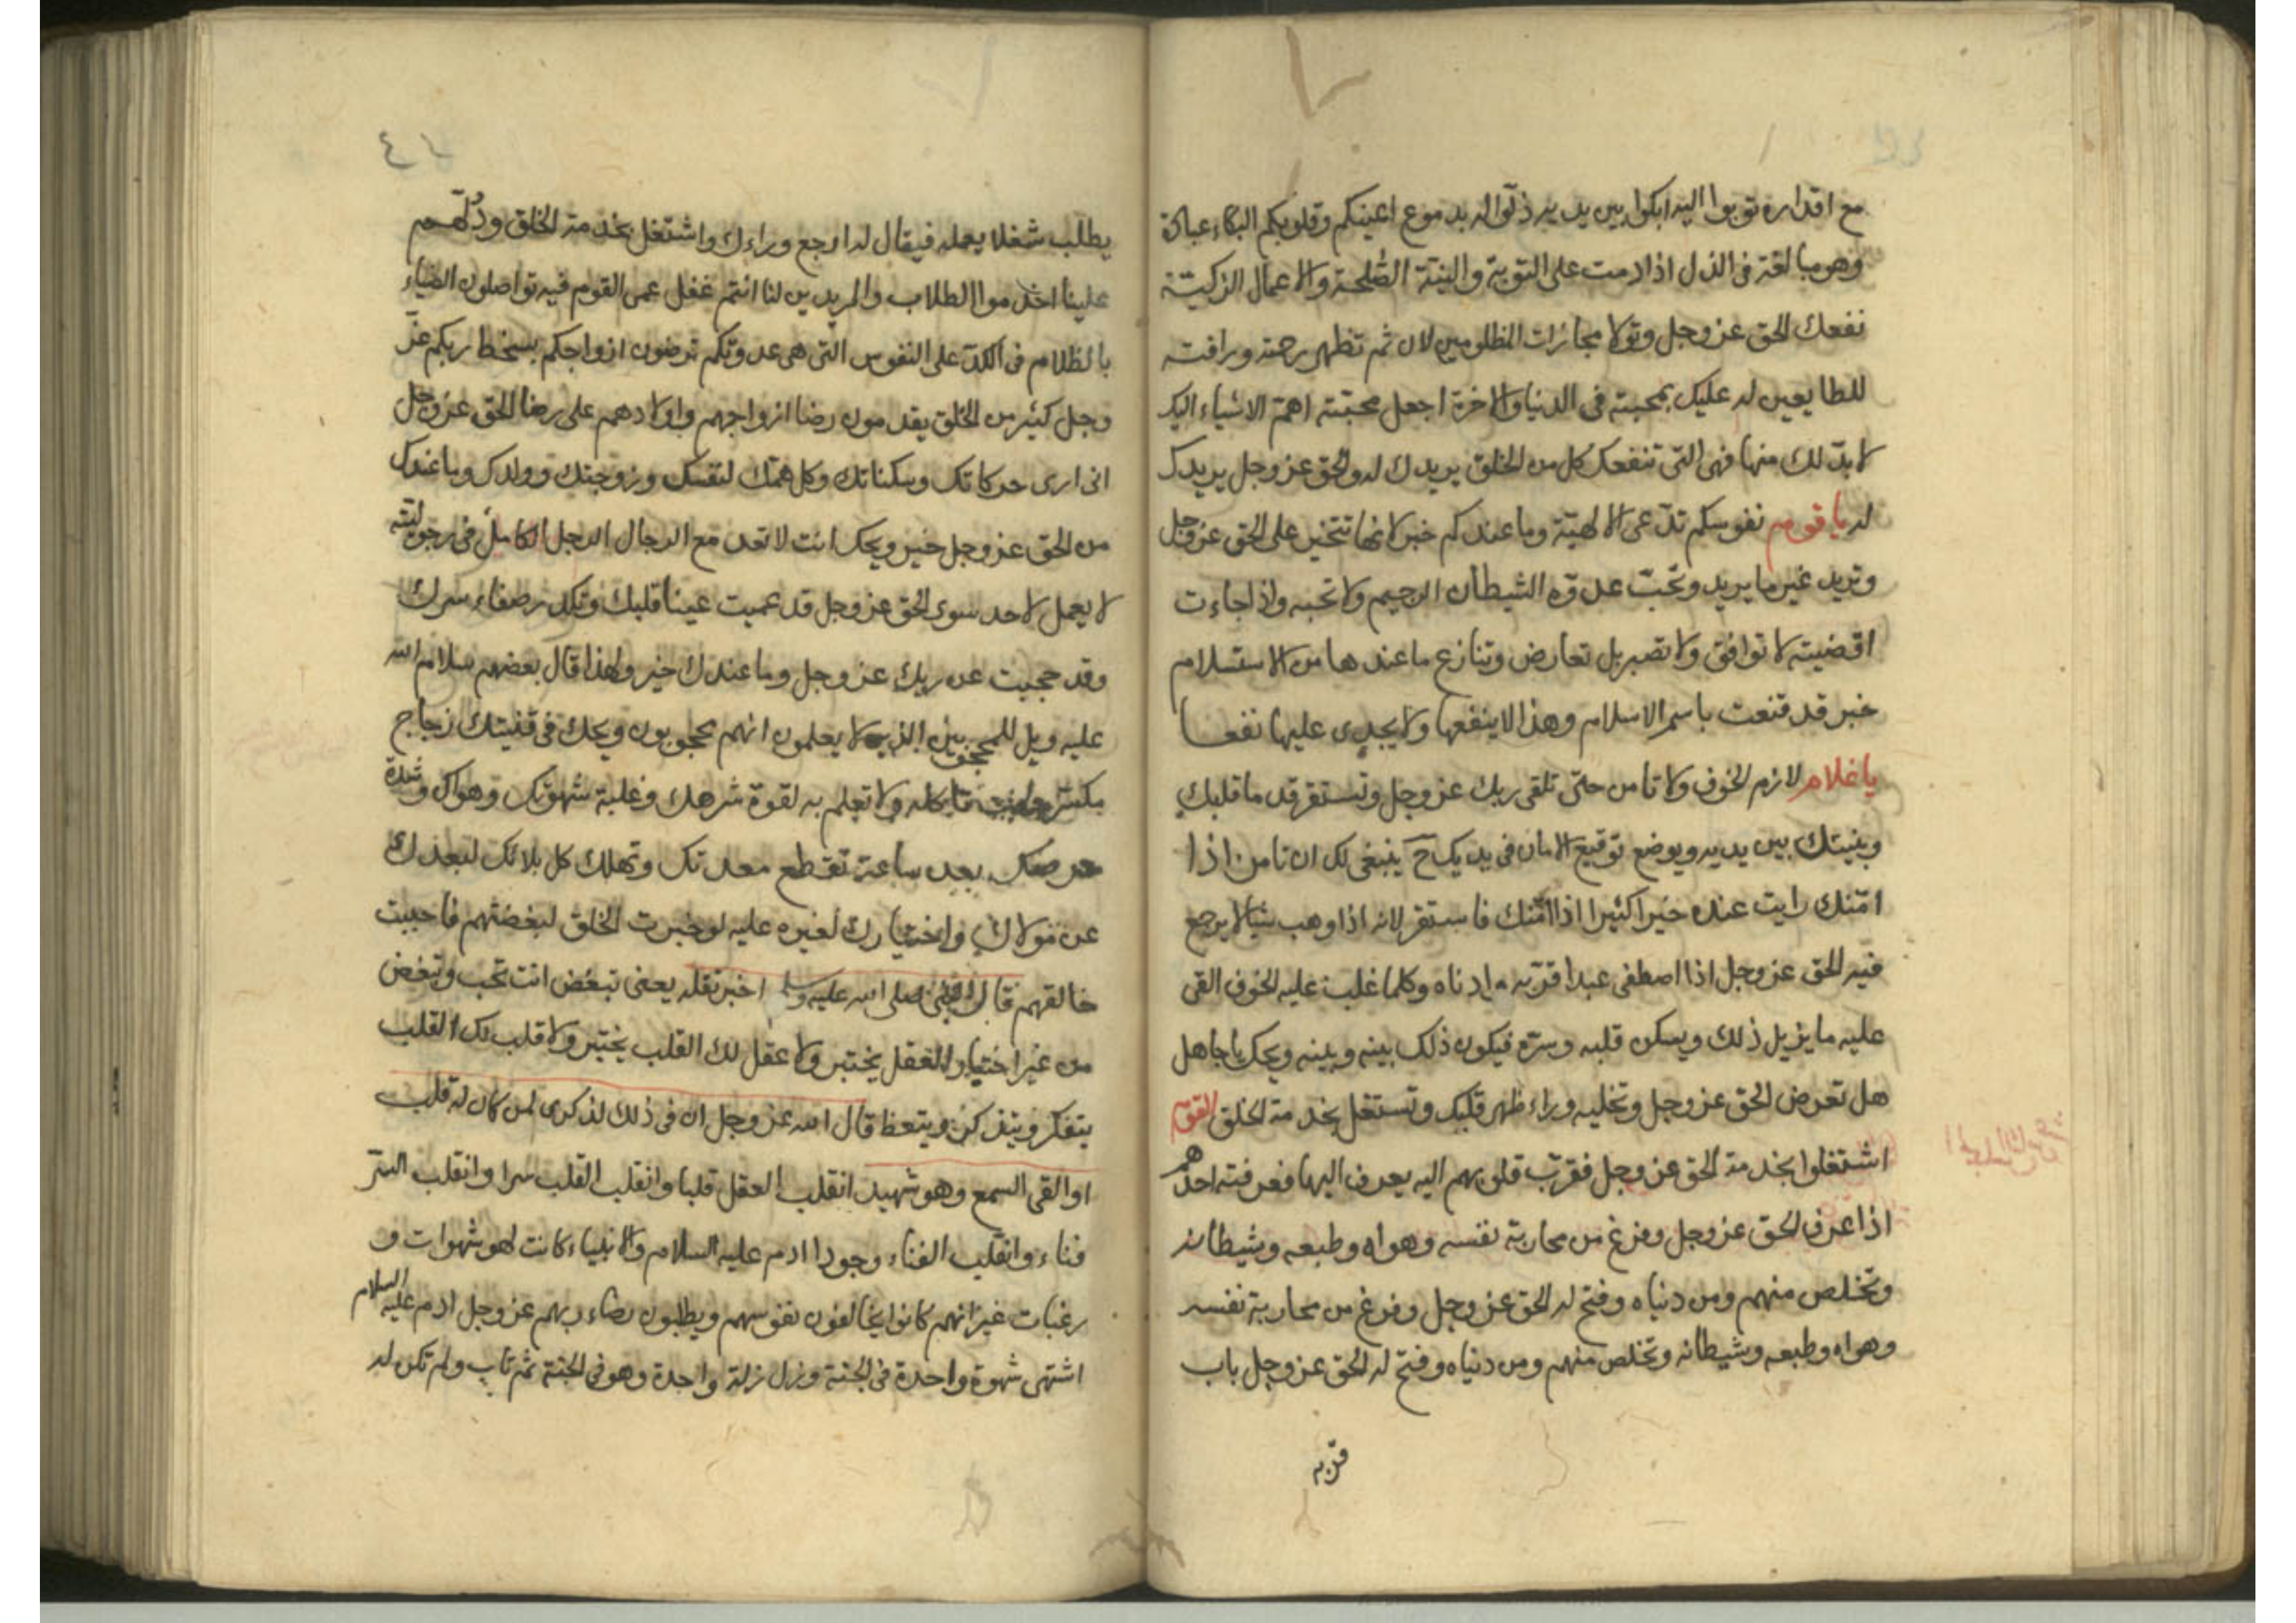 مع اقداره توبوا اليه ابكوا بين يديه ذلوا له بدموع اعينكم وقلوبكم البكاء عبادة
وهو مبالغة فى الذل اذا دمت على التوبة والنية الصلحة والاعمال الزكيّة
نفعك الحق عز وجل وتولا مجازات المظلومين لان ثم تظهر رحمته ورافته
للطايعين له عليك بمحبته فى الدنيا والاخرة اجعل محبّته اهمّ الاشياء اليك
لابدّ لك منها فهى التى تنفعك كل من الخلق يريدك له والحق عز وجل يريدك
له يا قوم نفوسكم تدّعى الالهيّة وما عندكم خبر لانها تتخير على الحق عز وجل
وتريد غير ما يريد وتحبّ عدوّه الشيطان الرجيم ولا تحبه واذا جاءت
اقضيته لا توافق ولا تصبر بل تعارض وتنازع ما عندها من الاستسلام
خبر قد قنعت باسم الاسلام وهذا لا ينفعها ولا يجدى عليها نفعا
يا غلام لازم الخوف ولا تامن حتى تلقى ربك عز وجل وتستقر قدما قلبك
وبنيتك بين يديه ويوضع توقيع الامان فى يديك ح ينبغى لك ان تامن اذا
امّنك رايت عنده خيرا كثيرا اذا امّنك فاستقر لانه اذا وهب شيا لا يرجع
فيه الحق عز وجل اذا اصطفى عبدا قرّبه وادناه وكلما غلب عليه الخوف القى
عليه ما يزيل ذلك ويسكن قلبه وسرّه فيكون ذلك بينه وبينه ويحك يا جاهل
هل تعرض الحق عز وجل وتخليه وراء ظهر قلبك وتستغل بخدمة الخلق القوم
اشتغلوا بخدمة الحق عز وجل فقرّب قلوبهم اليه يعرف اليها فعرفته احدهم
اذا عرف الحق عز وجل وفرغ من محاربة نفسه وهواه وطبعه وشيطانه
وتخلص منهم ومن دنياه وفتح له الحق عز وجل وفرغ من محاربة نفسه
وهواه وطبعه وشيطانه وتخلص منهم ومن دنياه وفتح له الحق عز وجل باب
قربه
يطلب شغلا يعمله فيقال له ارجع وراءك واشتغل بخدمة الخلق ودلّهم
علينا اخدموا الطلاب والمريدين لنا انتم غفل عمى القوم فيه تواصلون الضياء
بالظلام فى الكدّ على النفوس التى هى عدوتكم ترضون ازواجكم بسخط ربكم عزّ
وجل كثير من الخلق يقدمون رضا ازواجهم واولادهم على رضا الحق عز وجل
انى ارى حركاتك وسكناتك وكل همّك لنفسك وزوجتك وولدك وما عندك
من الحق عز وجل خبر ويحك انت لا تعد مع الرجال الرجل الكامل فى رجوليته
لا يعمل لاحد سوى الحق عز وجل قد عميت عينا قلبك وتكدر صفاء سرك
وقد حجبت عن ربك عز وجل وما عندك خبر ولهذا قال بعضهم سلام الله
عليه ويل للمحجوبين الذين لا يعلمون انهم محجوبون ويحك فى قفيتك زجاج
مكسر وانت تاكله ولا تعلم به لقوة شرهك وغلبة شهوتك وهواك وشدة
حرصك بعد ساعة تقطع معدتك وتهلك كل بلائك لبعدك
عن مولاك واختيارك لغيره عليه لو خبرت الخلق لبغضتهم فاحببت
خالقهم قال النبى صلى الله عليه وسلم اخبر تقله يعنى تبغض انت تحب وتبغض
من غير اختبار العقل يختبر ولا عقل لك القلب يختبر ولا قلب لك القلب
يتفكر ويتذكر ويتعظ قال الله عز وجل ان فى ذلك لذكرى لمن كان له قلب
او القى السمع وهو شهيد انقلب العقل قلبا وانقلب القلب سرا وانقلب السرّ
فناء وانقلب الفناء وجودا ادم عليه السلام والانبياء كانت لهم شهوات و
رغبات غير انهم كانوا يخالفون نفوسهم ويطلبون رضاء ربهم عز وجل ادم عليه السلام
اشتهى شهوة واحدة فى الجنة وزل زلة واحدة وهو فى الجنة ثم تاب ولم تكن له